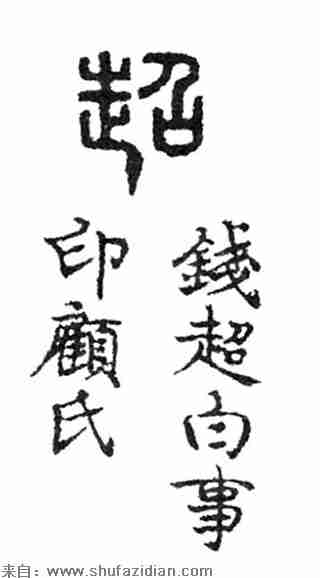 超
錢超白事
印顧氏
来自：www.shufazidian.com